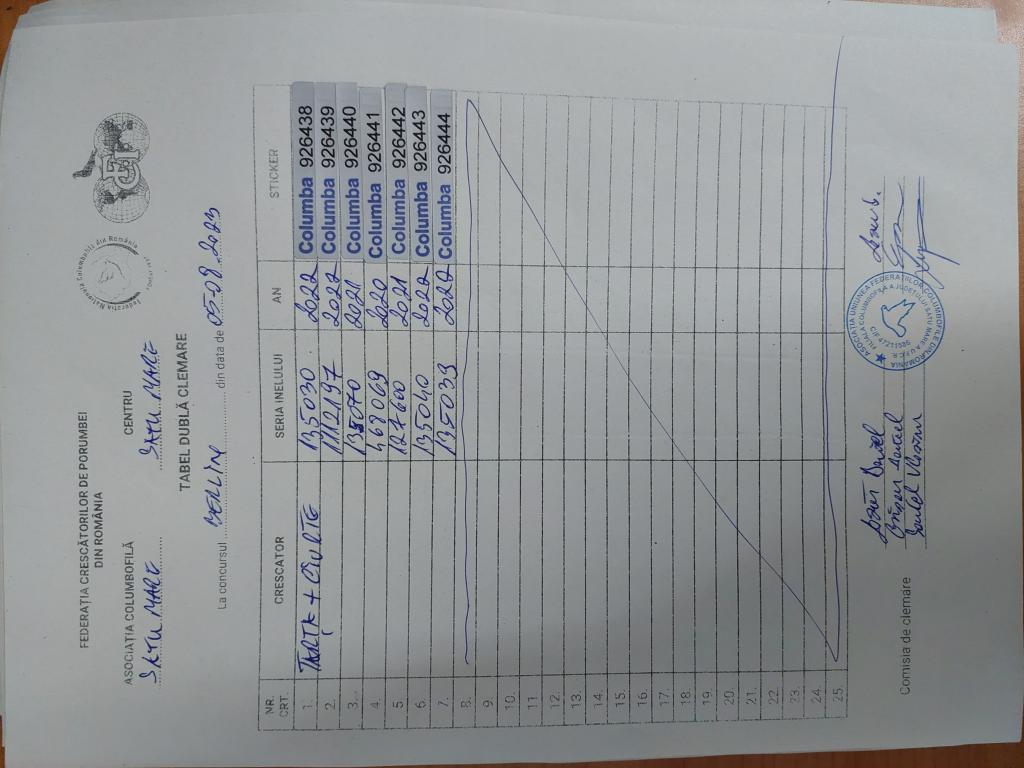 FEDERAȚIA CRESCĂTORILOR DE PORUMBEI
DIN ROMÂNIA
Federația Națională Columbofilă din România
ASOCIAȚIA COLUMBOFILĂ CENTRU
SATU MARE SATU MARE
TABEL DUBLĂ CLEMARE
La concursul BERLIN din data de 05.08.2023
NR. CRT. CRESCATOR SERIA INELULUI AN STICKER
1. TARȚA + CIURTE 135030 2022 Columba 926438
2. 1112197 2022 Columba 926439
3. 135070 2021 Columba 926440
4. 468069 2020 Columba 926441
5. 127600 2021 Columba 926442
6. 135040 2022 Columba 926443
7. 135039 2022 Columba 926444
8.
9.
10.
11.
12.
13.
14.
15.
16.
17.
18.
19.
20.
21.
22.
23.
24.
25.
Comisia de clemare
ASOCIAȚIA UNIUNEA FEDERAȚIILOR COLUMBOFILE DIN ROMANIA
FILIALA COLUMBOFILA A JUDETULUI SATU MARE A U.F.C.R.
CIF 47211586